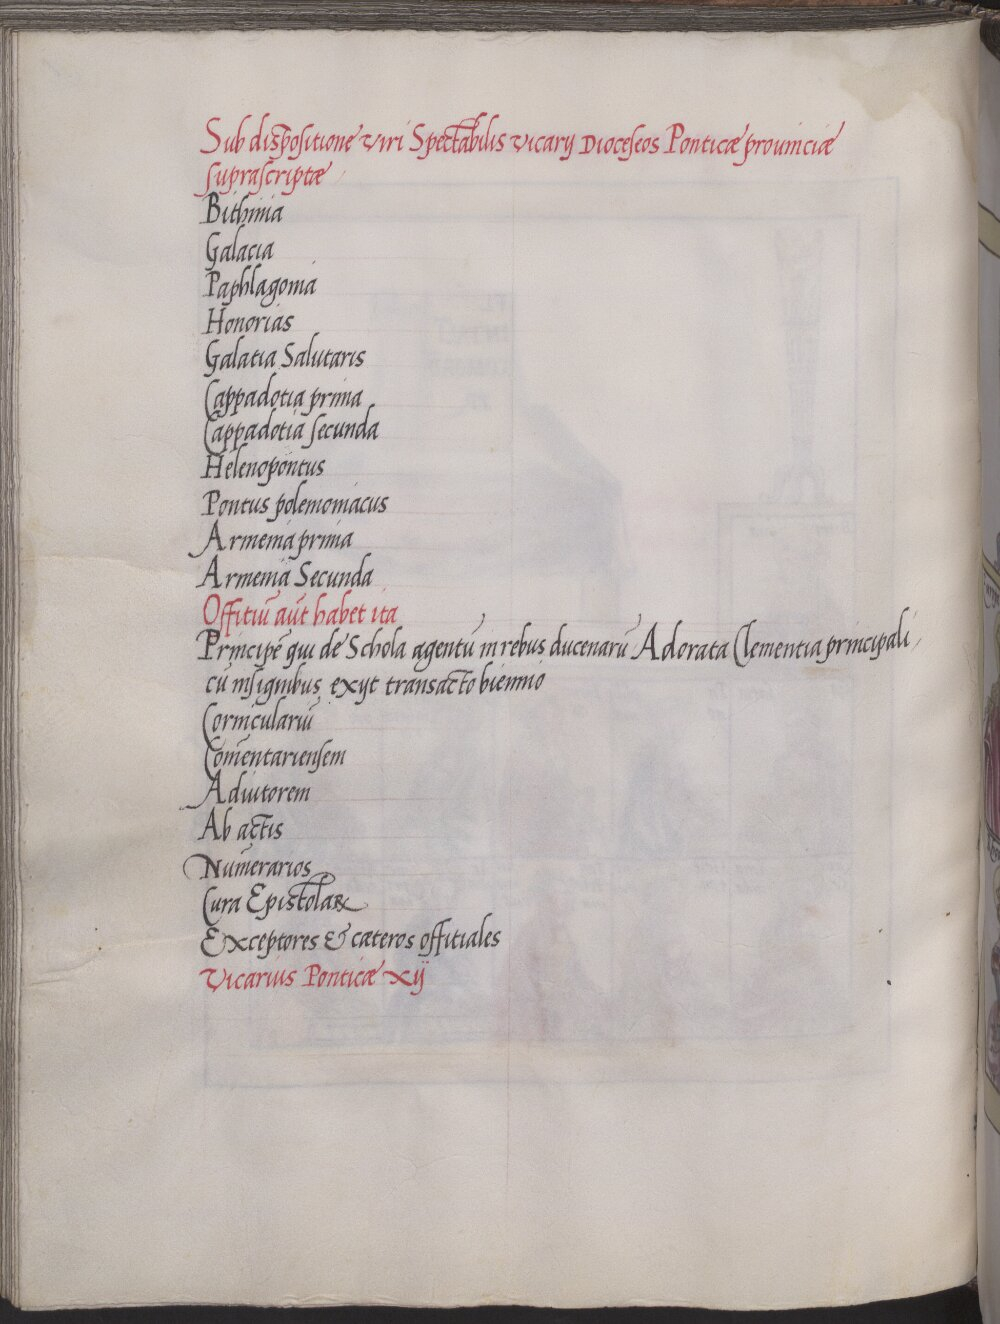 Sub dispositione viri Spectabilis vicarij Dioceseos Ponticæ prouinciæ
suprascriptæ
Bithinia
Galacia
Paphlagonia
Honorias
Galatia Salutaris
Cappadotia prima
Cappadotia secunda
Helenopontus
Pontus polemoniacus
Armenia prima
Armenia Secunda
Offitiū aūt habet ita
Principē qui de Schola agentū in rebus ducenarū Adorata Clementia principali,
cū insignibus exijt transacto biennio
Corniculariū
Comēntariensem
Adiutorem
Ab actis
Numērarios
Cura Epistolaꝝ
Exceptores & cæteros offitiales
Vicarius Ponticæ xij